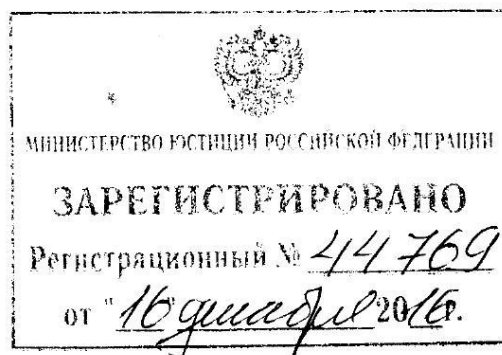 МИНИСТЕРСТВО ЮСТИЦИИ РОССИЙСКОЙ ФЕДЕРАЦИИ
ЗАРЕГИСТРИРОВАНО
Регистрационный № 44769
от "16" декабря 2016г.